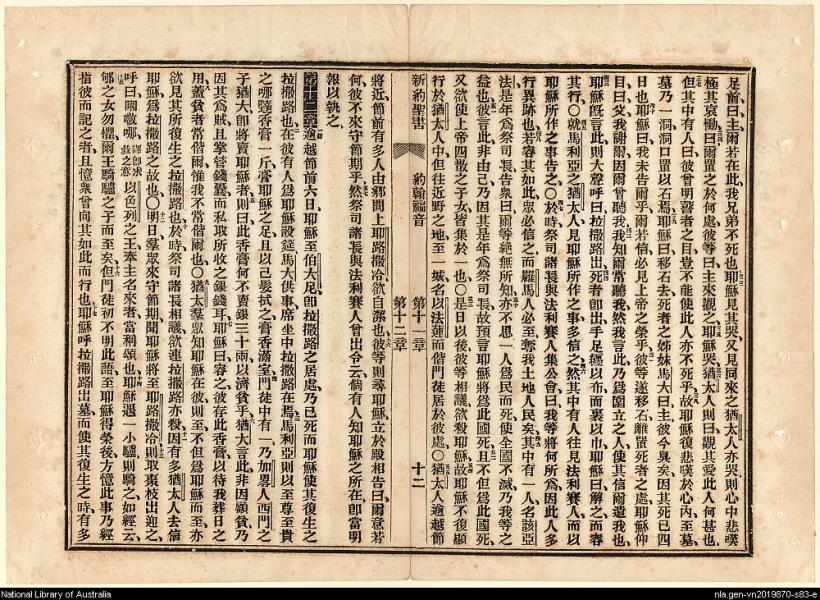 足前曰主爾若在此我兄弟不死也耶穌見其哭又見同來之猶太人亦哭則心中悲嘆
極其哀慟曰爾置之於何處彼等曰主來觀之耶穌哭猶太人則曰觀其愛此人何甚也
但其中有人曰彼曾明瞽者之目豈不能使此人亦不死乎故耶穌復悲嘆於心內至墓
墓乃一洞洞口置以石焉耶穌曰移石去死者之姊妹馬大曰主彼今臭矣因其死已四
日也耶穌曰我未告爾乎爾若信必見上帝之榮乎彼等遂移石離置死者之處耶穌仰
目曰父我謝爾因爾曾聽我我知爾常聽我然我言此乃為圍立之人使其信爾遣我也
耶穌既言此則大聲呼曰拉撒路出死者即出手足纏以布面裹以巾耶穌曰解之而容
其行○就馬利亞之猶太人見耶穌所作之事多信之然其中有人往見法利賽人而以
耶穌所作之事告之○於時祭司諸長與法利賽人集公會曰我等將何所為因此人多
行異跡也若容其如此眾必信之而羅馬人必至奪我土地人民矣其中有一人名該亞
法是年為祭司長告眾曰爾等絕無所知亦不思一人為民而死使全國不滅乃我等之
益也彼言此非由己乃因其是年為祭司長故預言耶穌將為此國死且不但為此國死
又欲使上帝四散之子女皆集於一也○是日以後彼等相議欲殺耶穌故耶穌不復顯
行於猶太人中但往近野之地至一城名以法蓮而偕門徒居於彼處○猶太人逾越節
新約聖書 約翰福音 第十一章 第十二章 十二
將近節前有多人由鄉間上耶路撒冷欲自潔也彼等則尋耶穌立於殿相告曰爾意若
何彼不來守節期乎然祭司諸長與法利賽人曾出令云倘有人知耶穌之所在即當明
報以執之
第十二章逾越節前六日耶穌至伯大尼即拉撒路之居處乃已死而耶穌使其復生之
拉撒路也在彼有人為耶穌設筵馬大供事席坐中拉撒路在焉馬利亞則以至尊至貴
之哪噠香膏一斤膏耶穌之足且以己髮拭之膏香滿室門徒中有一乃加畧人西門之
子猶大即將賣耶穌者則曰此香膏何不賣銀三十兩以濟貧乎猶大言此非因顧貧乃
因其為賊且掌管錢囊而私取所收之銀錢耳耶穌曰容之彼存此香膏以待我葬日之
用蓋貧者常偕爾惟我不常偕爾也○猶太羣眾知耶穌在彼則至不但為耶穌而至亦
欲見其所復生之拉撒路也於時祭司諸長相議欲連拉撒路亦殺因有多猶太人去信
耶穌為拉撒路之故也○明日羣眾來守節期聞耶穌將至耶路撒冷則取棗枝出迎之
呼曰㗒散嗱譯即求救之意以色列之王奉主名來者當稱頌也耶穌遇一小驢則騎之如經云
郇之女勿懼爾王騎驢之子而至矣但門徒初不明此語至耶穌得榮後方憶此事乃經
指彼而記之者且憶眾曾向其如此而行也耶穌呼拉撒路出墓而使其復生之時有多
National Library of Australia
nla.gen-vn2019870-s83-e